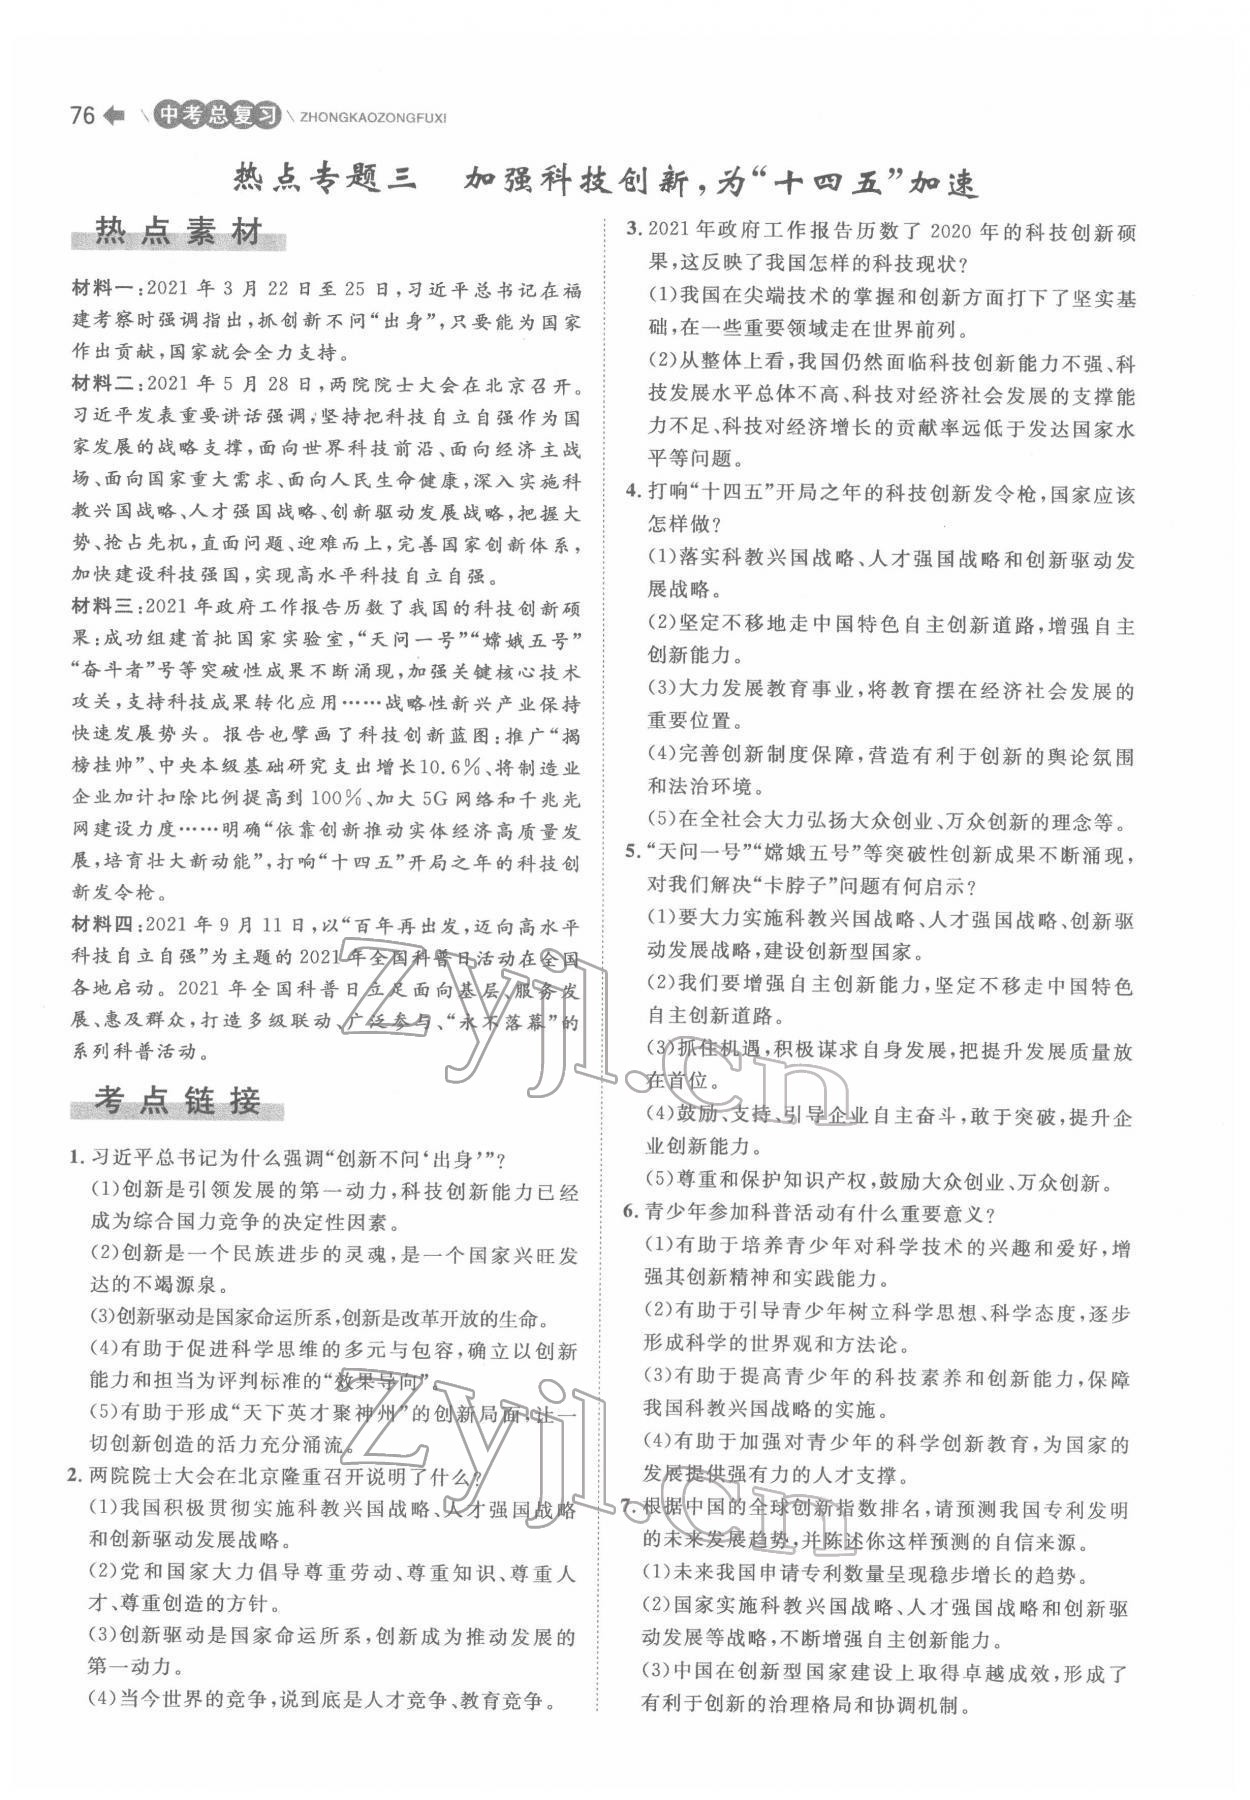 76 中考总复习 ZHONGKAOZONGFUXI
热点专题三 加强科技创新,为“十四五”加速
热点素材
材料一:2021 年 3 月 22 日至 25 日,习近平总书记在福
建考察时强调指出,抓创新不问“出身”,只要能为国家
作出贡献,国家就会全力支持。
材料二:2021 年 5 月 28 日,两院院士大会在北京召开。
习近平发表重要讲话强调,坚持把科技自立自强作为国
家发展的战略支撑,面向世界科技前沿、面向经济主战
场、面向国家重大需求、面向人民生命健康,深入实施科
教兴国战略、人才强国战略、创新驱动发展战略,把握大
势、抢占先机,直面问题、迎难而上,完善国家创新体系,
加快建设科技强国,实现高水平科技自立自强。
材料三:2021 年政府工作报告历数了我国的科技创新硕
果:成功组建首批国家实验室,“天问一号”“嫦娥五号”
“奋斗者”号等突破性成果不断涌现,加强关键核心技术
攻关,支持科技成果转化应用……战略性新兴产业保持
快速发展势头。报告也擘画了科技创新蓝图:推广“揭
榜挂帅”、中央本级基础研究支出增长10.6%、将制造业
企业加计扣除比例提高到 100%、加大 5G 网络和千兆光
网建设力度……明确“依靠创新推动实体经济高质量发
展,培育壮大新动能”,打响“十四五”开局之年的科技创
新发令枪。
材料四:2021 年 9 月 11 日,以“百年再出发,迈向高水平
科技自立自强”为主题的 2021 年全国科普日活动在全国
各地启动。2021 年全国科普日立足面向基层、服务发
展、惠及群众,打造多级联动、广泛参与、“永不落幕”的
系列科普活动。
考点链接
1. 习近平总书记为什么强调“创新不问‘出身’”?
(1)创新是引领发展的第一动力,科技创新能力已经
成为综合国力竞争的决定性因素。
(2)创新是一个民族进步的灵魂,是一个国家兴旺发
达的不竭源泉。
(3)创新驱动是国家命运所系,创新是改革开放的生命。
(4)有助于促进科学思维的多元与包容,确立以创新
能力和担当为评判标准的“效果导向”。
(5)有助于形成“天下英才聚神州”的创新局面,让一
切创新创造的活力充分涌流。
2. 两院院士大会在北京隆重召开说明了什么?
(1)我国积极贯彻实施科教兴国战略、人才强国战略
和创新驱动发展战略。
(2)党和国家大力倡导尊重劳动、尊重知识、尊重人
才、尊重创造的方针。
(3)创新驱动是国家命运所系,创新成为推动发展的
第一动力。
(4)当今世界的竞争,说到底是人才竞争、教育竞争。
3. 2021 年政府工作报告历数了 2020 年的科技创新硕
果,这反映了我国怎样的科技现状?
(1)我国在尖端技术的掌握和创新方面打下了坚实基
础,在一些重要领域走在世界前列。
(2)从整体上看,我国仍然面临科技创新能力不强、科
技发展水平总体不高、科技对经济社会发展的支撑能
力不足、科技对经济增长的贡献率远低于发达国家水
平等问题。
4. 打响“十四五”开局之年的科技创新发令枪,国家应该
怎样做?
(1)落实科教兴国战略、人才强国战略和创新驱动发
展战略。
(2)坚定不移地走中国特色自主创新道路,增强自主
创新能力。
(3)大力发展教育事业,将教育摆在经济社会发展的
重要位置。
(4)完善创新制度保障,营造有利于创新的舆论氛围
和法治环境。
(5)在全社会大力弘扬大众创业、万众创新的理念等。
5. “天问一号”“嫦娥五号”等突破性创新成果不断涌现,
对我们解决“卡脖子”问题有何启示?
(1)要大力实施科教兴国战略、人才强国战略、创新驱
动发展战略,建设创新型国家。
(2)我们要增强自主创新能力,坚定不移走中国特色
自主创新道路。
(3)抓住机遇,积极谋求自身发展,把提升发展质量放
在首位。
(4)鼓励、支持、引导企业自主奋斗,敢于突破,提升企
业创新能力。
(5)尊重和保护知识产权,鼓励大众创业、万众创新。
6. 青少年参加科普活动有什么重要意义?
(1)有助于培养青少年对科学技术的兴趣和爱好,增
强其创新精神和实践能力。
(2)有助于引导青少年树立科学思想、科学态度,逐步
形成科学的世界观和方法论。
(3)有助于提高青少年的科技素养和创新能力,保障
我国科教兴国战略的实施。
(4)有助于加强对青少年的科学创新教育,为国家的
发展提供强有力的人才支撑。
7. 根据中国的全球创新指数排名,请预测我国专利发明
的未来发展趋势,并陈述你这样预测的自信来源。
(1)未来我国申请专利数量呈现稳步增长的趋势。
(2)国家实施科教兴国战略、人才强国战略和创新驱
动发展等战略,不断增强自主创新能力。
(3)中国在创新型国家建设上取得卓越成效,形成了
有利于创新的治理格局和协调机制。
zyjl.cn
zyjl.cn